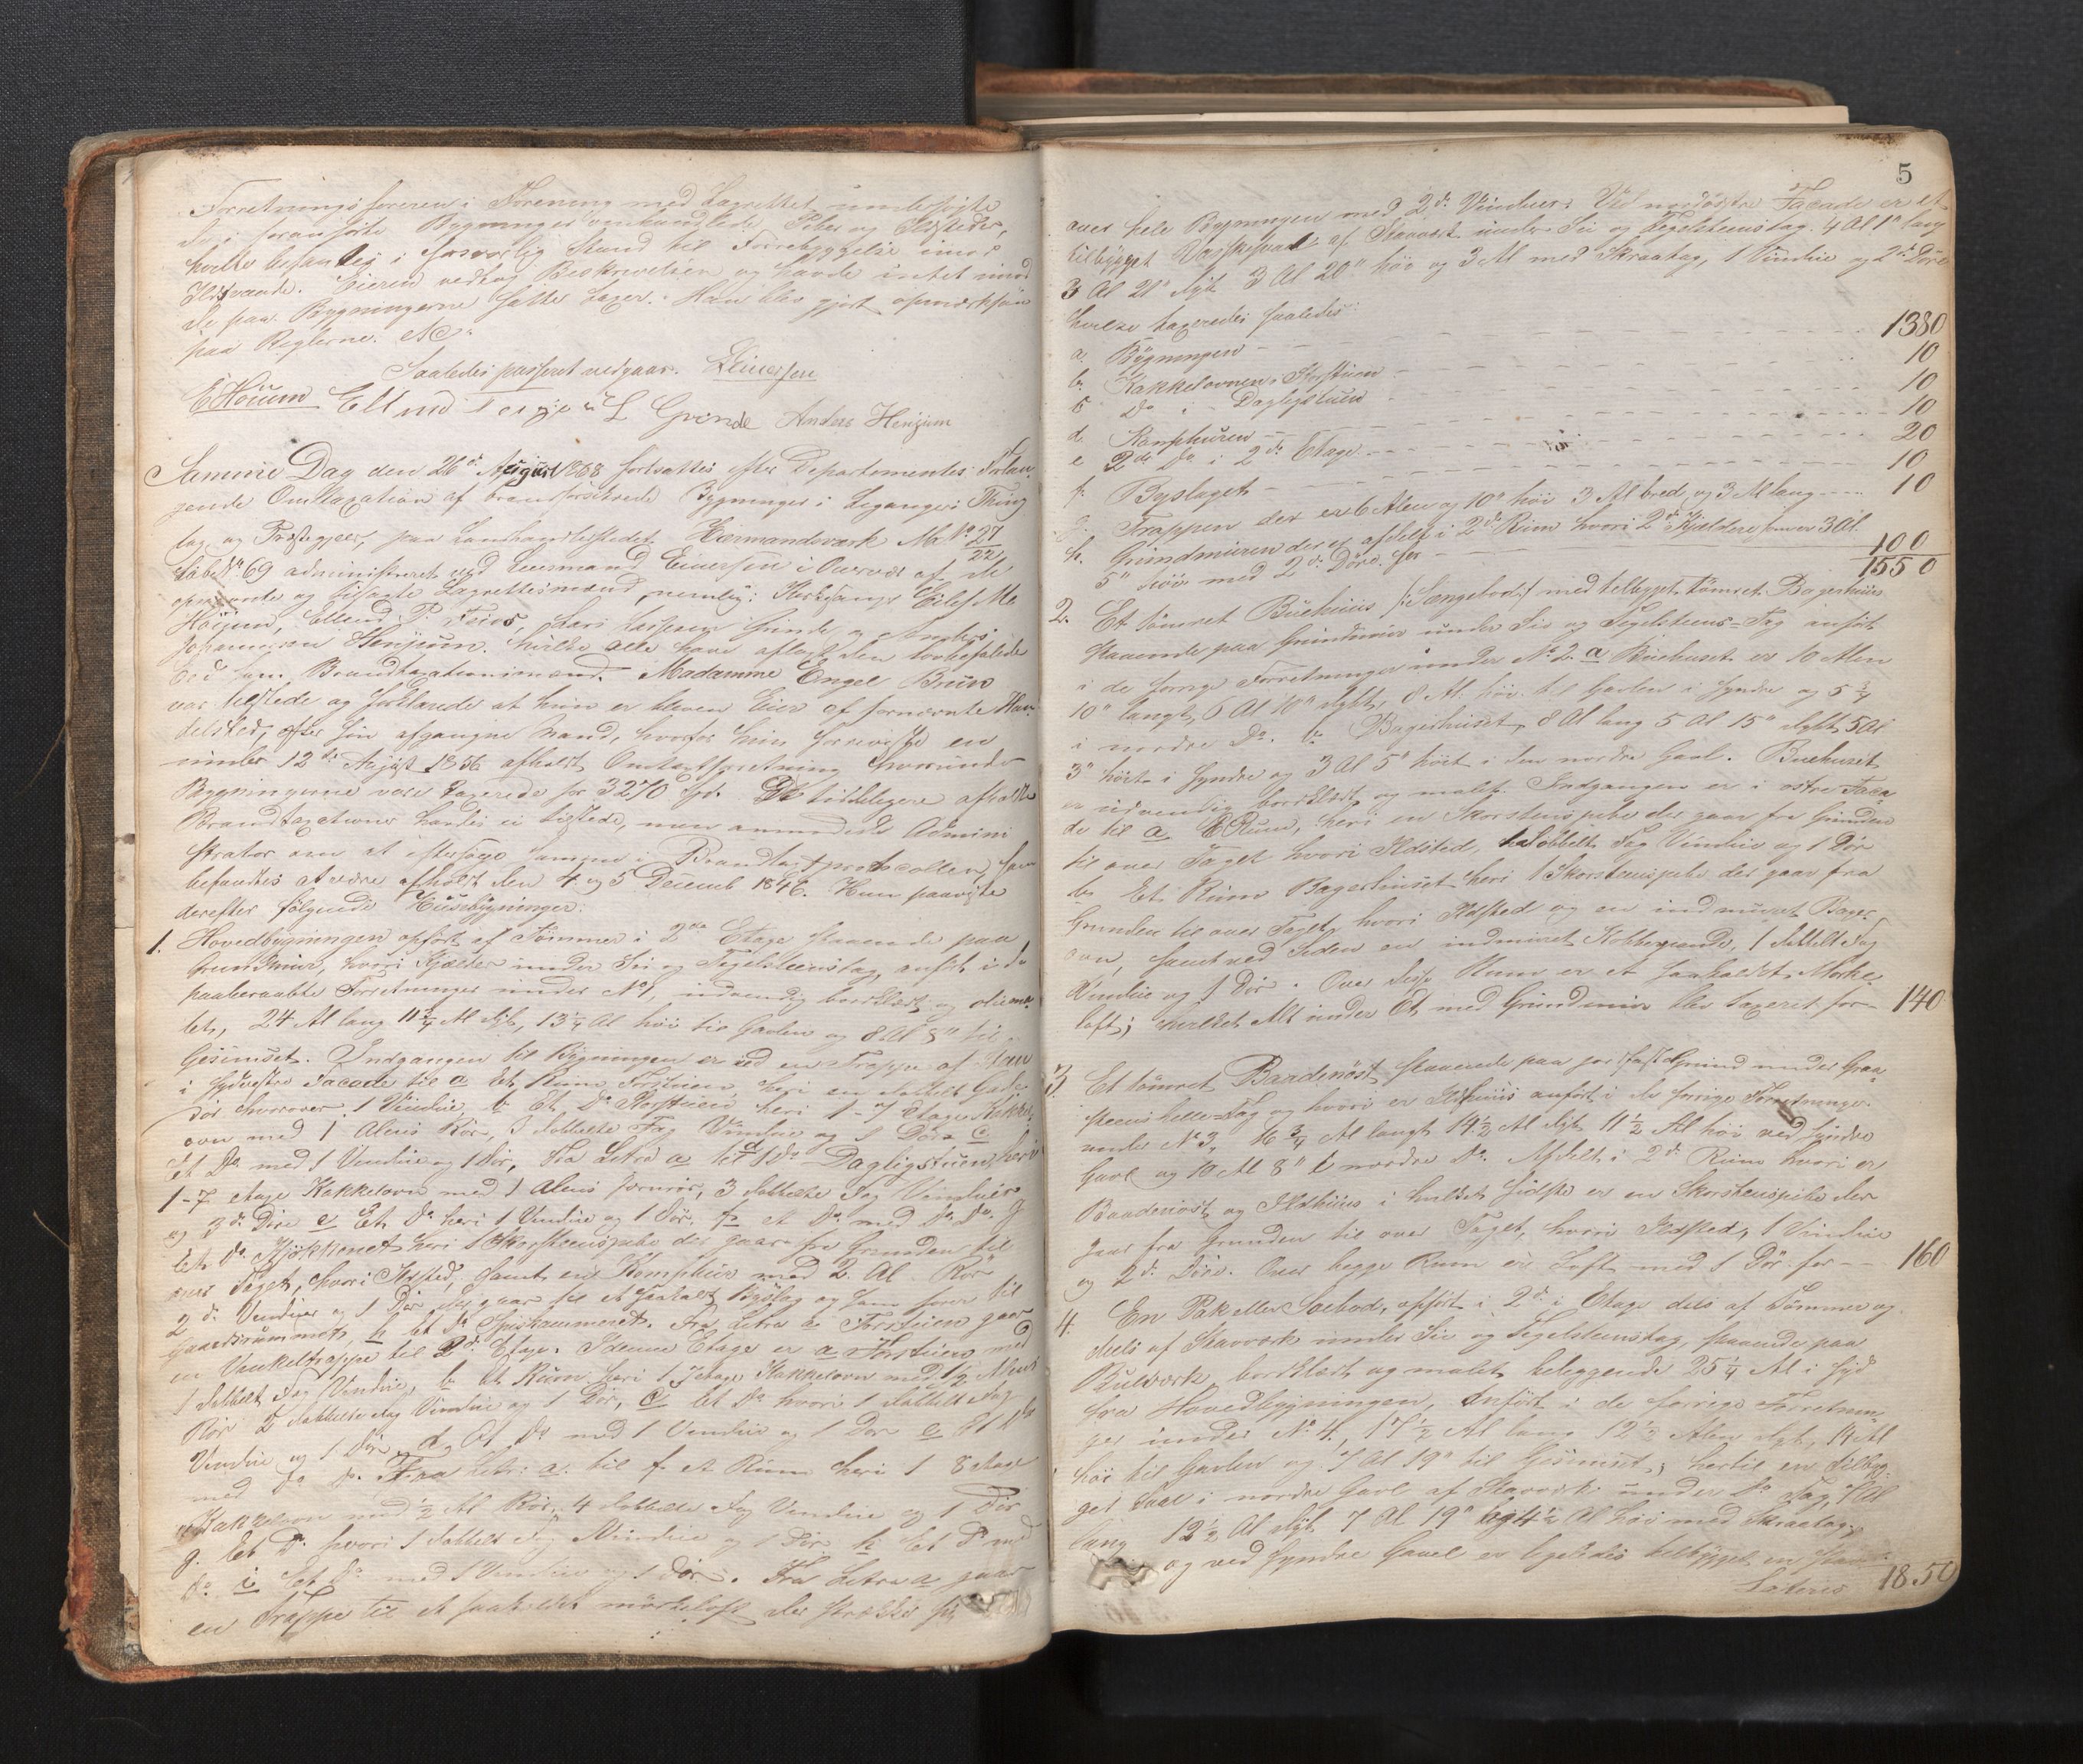 Forretningsföreren i Forening med Lagrettet undersögte
de i foranförte Bygninger omhandlede Piber og Ildsteder,
hvilke befandtes i forsvarlig Stand til Forrebyggelse imod
Ildsvaade. Eieren vedtog Beskrivelsen og havde intet imod
de paa Bygningerne satte Taxer. Han blev gjort opmærksom
paa Reglerne. etc.
Saaledes passeret vedgaar. LEinersen
EHöium Ellend Torjer L Grinde Anders Henjum
Samme Dag den 26de August 1868 fortsattes efter Departementes Forlan
gende Omtaxation af brandforsikrede Bygninger i Leganger Thing
lag og Præstegjeld, paa Landhandlerstedet Hermandsværk M. No 27
Löbe No 69 administreret ved Lensmand Einersen i Overvær af de
opnævnte og tilsagte Lagrettesmænd, nemlig: Kirkesanger Eilef M.
Höijum, Ellend P. Feios, Lars Larssen Grinde og Anders
Johannesen Henjum. hvilke alle have aflagt den lovbefalede
Ed som Brandtaxationsmænd. Madamme Engel Brun
var tilstede og forklarede at hun er bleven Eier af fornævnte Han
delsted, efter sin afgangne Mand, hvorfor hun foreviste en
under 12de August 1856 afholdt Omtaxtforretning hvorunder
Bygningerne vare taxerede for 3270 Spd. De tiddeligere afholdte
Brandtaxationer havdes ei tilstede, men anmodede Admini
strator om at eftersöge samme i Brandtaxtprotocollen, som
befandtes at være afholdt den 4 og 5 Decemb 1846. Hun paaviste
derefter fölgende Huusebygninger:
1. Hovedbygningen opfört af Tömmer i 2de Etage staaende paa
Grundmuur, hvori Kjælder under Su og Tegelsteenstag, anfört i de
paaberaabte Forretninger under No 1, udvendig bordklædt og oliema
let, 24 Al lang 11 3/4 Al dyb, 13 1/4 Al höi til Gavlen og 8 Al 8" til
Gesimset. Indgangen til Bygningen er ved en Trappe af Steen
i sydvestre Facade til a Et Rum Forstuen heri en dobbelt Gade
dör hvorover 1 Vindue, b Et Do Storstuen heri 1-7 Etage Kakkel
ovn med 1 Alens Rör, 3 dobbelte Fag Vindue og 1 Dör c
Et Do med 1 Vindue og 1 Dör, Fra Litra a til d Et Do Dagligstuen, heri
1-7 etage Kakkelovn med 1 Alens Jernrör, 3 dobbelte Fag Vinduer
og 3de Döre e Et Do heri 1 Vindue og 1 Dör, f et Do med Do Do. g
Et Do Kjökkenet heri 1 Skorsteenspibe der gaar fra Grunden til
over Taget, hvori Ildsted, samt en Komphur med 2 Al Rör
2de Vinduer og 1 Dör der gaar til et saakalt Byslag og som förer til
Gaardsrummet, h et Do Spiskammeret. Fra Litra a Forstuen gaar
en Vinkeltrappe til 2de Etage. I denne Etage er a Forstuen med
1 dobbelt Fag Vindue, b Et Rum heri 1 7 etage Kakkelovn med 1/2 Alens
Rör 2 dobbelte Fag Vindue og 1 Dör, c Et Do hvori 1 dobbelt Fag
Vindue og 1 Dör, d Et Do med 1 Vindue og 1 Dör e Et Do
med Do Do. Fra Litr: a. til f et Rum heri 1 8 etage
Kakkelovn med 1/2 Al Rör, 4 dobbelte Fag Vindue og 1 Dör
g. Et Do hvori 1 dobbelt Fag Vindue og 1 Dör h Et Do med
Do i Et Do med 1 Vindue og 1 Dör. Fra Litra a gaar
en Trappe til et saakaldet mörkeloft der strækker sig
5
over hele Bygningen med 2de Vinduer. Ved nordöstre Facade er et
tilbygget Vaskeskuur af Stavværk under Su og Tegelsteenstag. 4 Al 1" lang
3 Al 21" dyb 3 Al 20" höi og 3 Al med Skraatag, 1 Vindue og 2de Döre
hvilke taxeredes saaledes:
a. Bygningen 1380
b. Kakkelovnen i Storstuen 10
c Do i Dagligstuen 10
d. Komphuren 10
e 2de Do i 2de Etage 20
f. Byslaget 10
g. Trappen der er 6 Alen og 10" höi 3 Al bred, og 3 Al lang 10
h. Grundmuren der er afdelt i 2de Rum hvori 2de Kjældere som er 3 Al
5" höie med 2de Döre for 100
1550
2. Et tömret Buehuus /: Sængebod :/ med tilbygget tömret Bagerhuus
staaende paa Grundmuur under Su og Tegelsteens-Tag anfört
i de forrige Forretninger under No 2. a Buehuset er 10 Alen
10" langt, 6 Al 10" dybt, 8 Al. höi til Gavlen i syndre og 5 3/4
i nordre Do. b Bagerhuset, 8 Al lang 5 Al 15" dybt 5 Al
3" höit i syndre og 3 Al 5" höit i den nordre Gavl. Buehuset
er udvendig bordklædt og malet. Indgangen er i ostre Faca
de til a Et Rum, heri en Skorstenspibe der gaar fra Grunden
til over Taget hvori Ildsted, 1 dobbelt Fag Vindue og 1 Dör
b Et Rum Bagerhuset heri 1 Skorsteenspibe der gaar fra
Grunden til over Taget, hvori Ildsted og en indmuret Bager
ovn, samt ved Siden en indmuret Kobberpande, 1 dobbelt Fag
Vindue og 1 Dör. Over disse Rum er et saakaldet Mörke
loft; hvilket Alt under Et med Grundmuur blev taxeret for 140
3. Et tömret Baadenöst staaende paa jordfast Grund under Graa
steens helle-Tag og hvori er Ildhuus anfört i de forrige Forretninger
under No 3, 16 3/4 Al langt 14 1/2 Al dyb 11 1/2 Al höi ved syndre
Gavl og 10 Al 8" i nordre Do. Afdelt i 2de Rum hvori er
Baadenöst og Ildhuus i hvilket sidste er en Skorsteenspibe der
gaar fra Grunden til over Taget, hvori Ildsted, 1 Vindue
og 2de Döre. Over begge Rum er Loft med 1 Dör for 160
4. En Pak eller Söebod, opfört i 2de Etage dels af Tömmer og
dels af Stavværk under Su og Tegelsteenstag, staaende paa
Bulværk, bordklædt og malet beliggende 25 1/4 Al i Syd
fra Hovedbygningen, Anfört i de forrige Forretnin
ger under No 4, 17 1/2 Al lang 12 1/2 Alen dyb, 14 Al
höi til Gavlen og 7 Al 19" til Gesimset; hertil en tilbyg
get Sval i nordre Gavl af Stavværk under Do Tag, Al
lang 12 1/2 Al dyb 7 Al 19" og 4 1/2 Al höi med Skraatag
og ved syndre Gavel er ligeledes tilbygget en
Lateris 1850